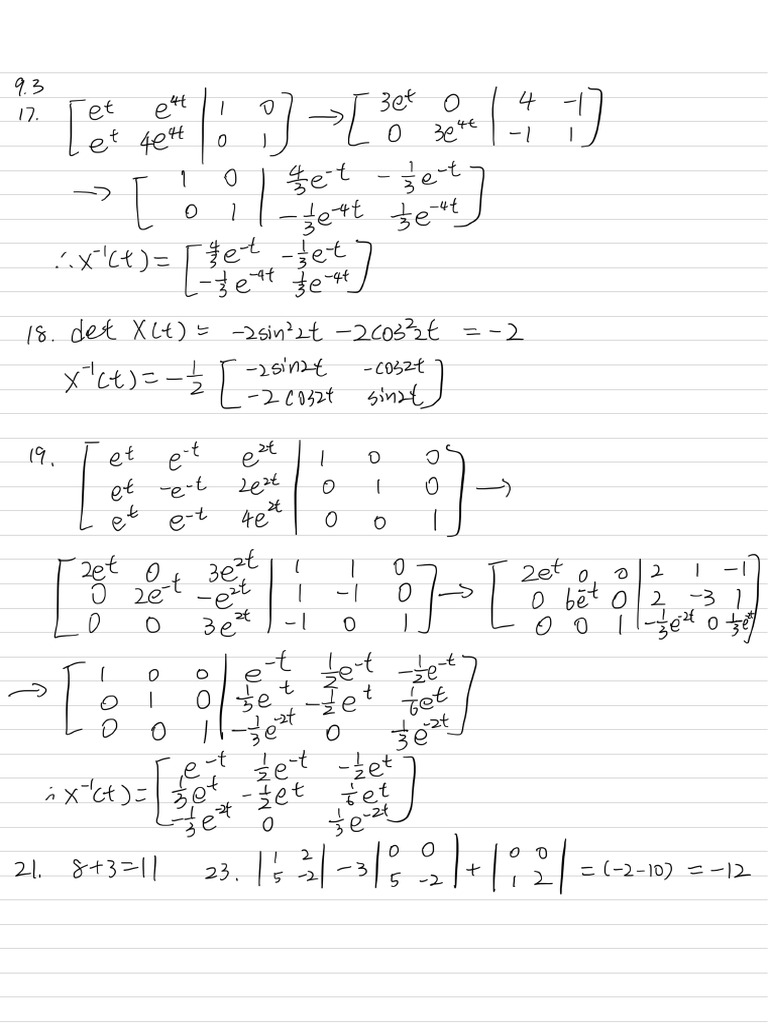 9.3
17. [ e^t e^{4t} | 1 0 ; e^t 4e^{4t} | 0 1 ] → [ 3e^t 0 | 4 -1 ; 0 3e^{4t} | -1 1 ]
→ [ 1 0 | 4/3 e^{-t} -1/3 e^{-t} ; 0 1 | -1/3 e^{-4t} 1/3 e^{-4t} ]
∴ X^{-1}(t) = [ 4/3 e^{-t} -1/3 e^{-t} ; -1/3 e^{-4t} 1/3 e^{-4t} ]
18. det X(t) = -2sin²2t - 2cos²2t = -2
X^{-1}(t) = -1/2 [ -2sin2t -cos2t ; -2cos2t sin2t ]
19. [ e^t e^{-t} e^{2t} | 1 0 0 ; e^t -e^{-t} 2e^{2t} | 0 1 0 ; e^t e^{-t} 4e^{2t} | 0 0 1 ] →
[ 2e^t 0 3e^{2t} | 1 1 0 ; 0 2e^{-t} -e^{2t} | 1 -1 0 ; 0 0 3e^{2t} | -1 0 1 ] → [ 2e^t 0 0 | 2 1 -1 ; 0 6e^{-t} 0 | 2 -3 1 ; 0 0 1 | -1/3 e^{-2t} 0 1/3 e^{-2t} ]
→ [ 1 0 0 | e^{-t} 1/2 e^{-t} -1/2 e^{-t} ; 0 1 0 | 1/3 e^t -1/2 e^t 1/6 e^t ; 0 0 1 | -1/3 e^{-2t} 0 1/3 e^{-2t} ]
∴ X^{-1}(t) = [ e^{-t} 1/2 e^{-t} -1/2 e^t ; 1/3 e^t -1/2 e^t 1/6 e^t ; -1/3 e^{-2t} 0 1/3 e^{-2t} ]
21. 8+3=11 23. | 1 2 ; 5 -2 | - 3 | 0 0 ; 5 -2 | + | 0 0 ; 1 2 | = (-2-10) = -12